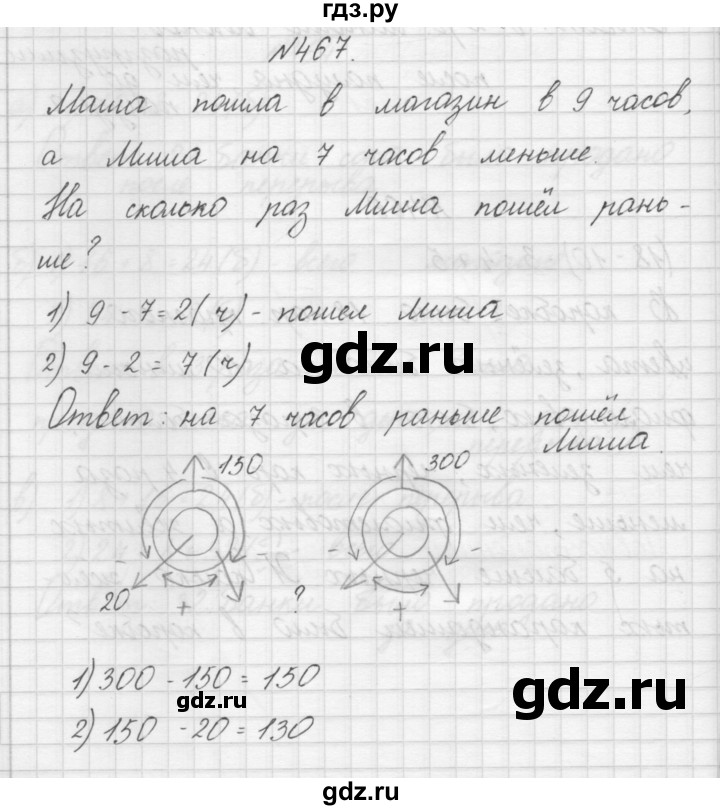 гдз.ру
№467.
Маша пошла в магазин в 9 часов,
а Миша на 7 часов меньше.
На сколько раз Миша пошёл рань-
ше?
1) 9 - 7 = 2 (ч) - пошел Миша
2) 9 - 2 = 7 (ч)
gdz.ru
Ответ: на 7 часов раньше пошёл
Миша.
150 300
- - - -
20 + ? +
1) 300 - 150 = 150
gdz.ru
2) 150 - 20 = 130
gdz.ru